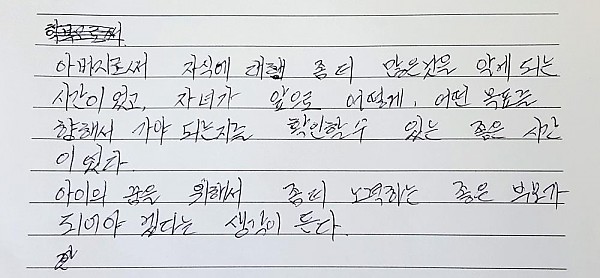 아버지로써 자식에 대해 좀더 많은것을 알게 되는
시간이 었고, 자녀가 앞으로 어떻게, 어떤 목표를
향해서 가야 되는지를 확인할수 있는 좋은 시간
이 었다.
아이의 꿈을 위해서 좀더 노력하는 좋은 부모가
되어야 겠다는 생각이 든다.